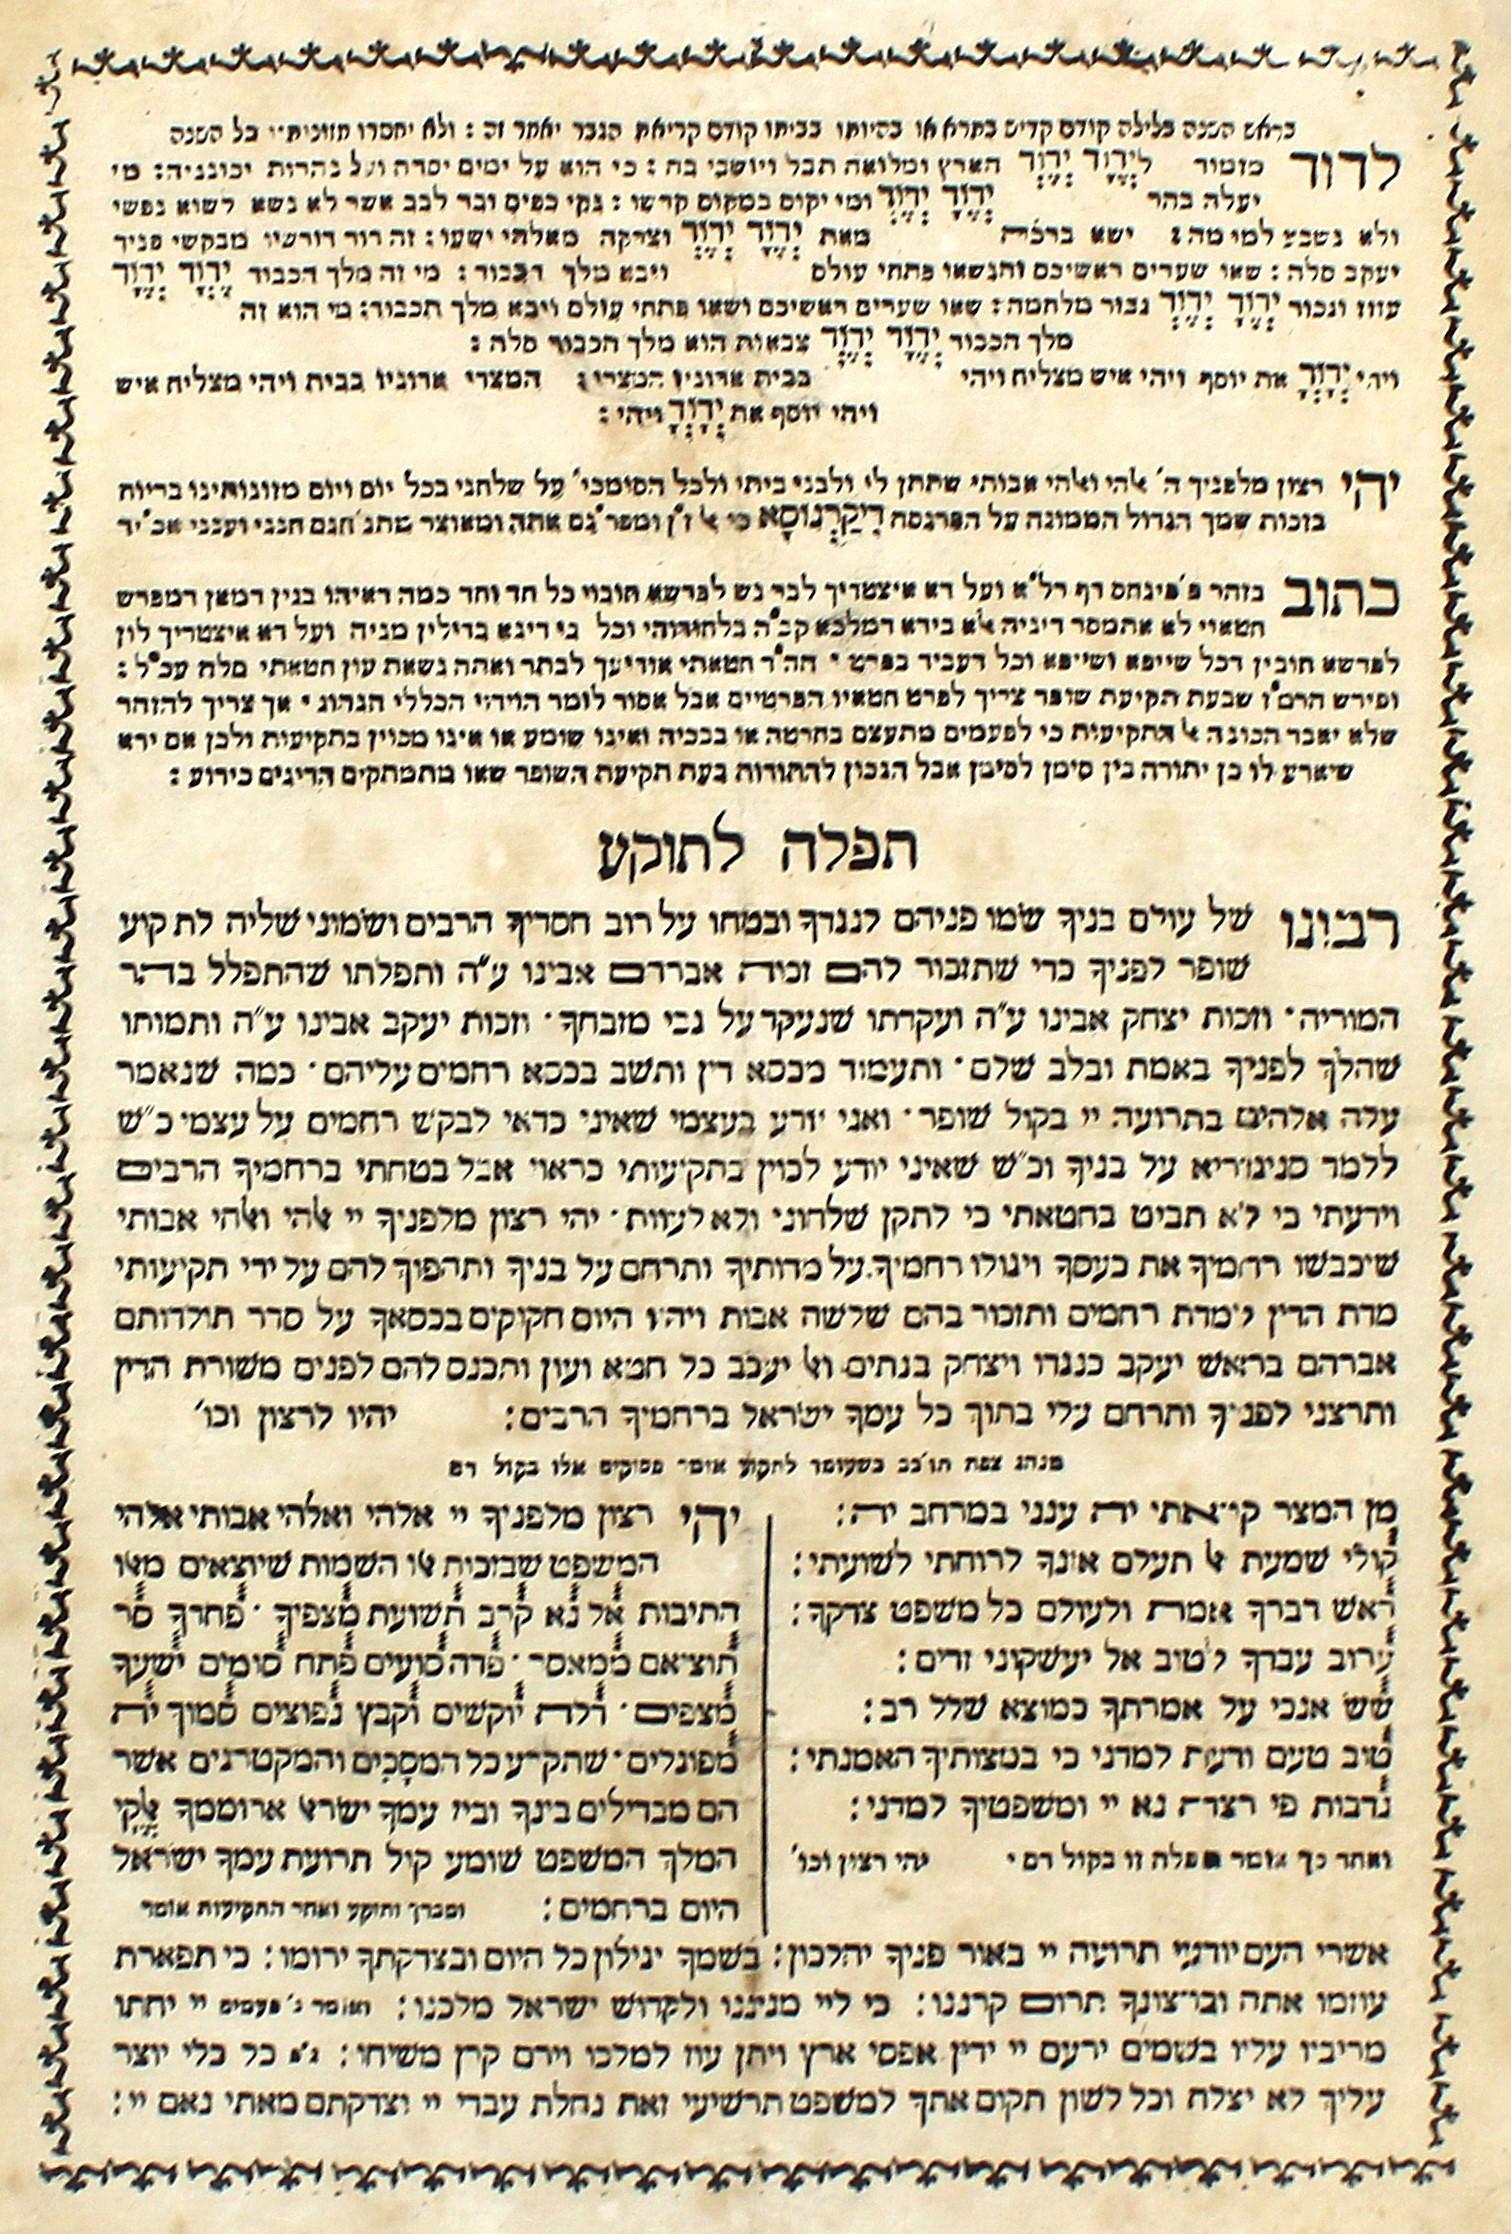 בראש השנה בלילה קודם קדיש בתרא או בהיותו בביתו קודם קריאת הגבר יאמר זה : ולא יחסרו מזונית״ו כל השנה
לדוד מזמור לידוד ידוד הארץ ומלואה תבל ויושבי בה : כי הוא על ימים יסדה ועל נהרות יכוננה : מי
יעלה בהר ידוד ידוד ומי יקום במקום קדשו : נקי כפים ובר לבב אשר לא נשא לשוא נפשי
ולא נשבע למרמה : ישא ברכה מאת ידוד ידוד וצדקה מאלהי ישעו : זה דור דורשיו מבקשי פניך
יעקב סלה : שאו שערים ראשיכם והנשאו פתחי עולם ויבא מלך הכבוד : מי זה מלך הכבוד ידוד ידוד
עזוז וגבור ידוד ידוד גבור מלחמה : שאו שערים ראשיכם ושאו פתחי עולם ויבא מלך הכבוד : מי הוא זה
מלך הכבוד ידוד ידוד צבאות הוא מלך הכבוד סלה :
ויהי ידוד את יוסף ויהי איש מצליח ויהי בבית אדוניו המצרי : המצרי אדוניו בבית ויהי מצליח איש
ויהי יוסף את ידוד ויהי :
יהי רצון מלפניך ה׳ אלהי ואלהי אבותי שתתן לי ולבני ביתי ולכל הסומכי׳ על שלחני בכל יום ויום מזונותינו בריוח
בזכות שמך הגדול הממונה על הפרנסה דיקרנוסא כי אל ז״ן ומפר״נס אתה ומאוצר מתנ׳ חנם חנני וענני אכי״ר
כתוב בזהר פ׳ פינחס דף רל״א ועל דא איצטריך לבר נש לפרשא חובוי כל חד וחד כמה דאיהו בגין דמאן דמפרש
חטאוי לא אתמסר דיניה אלא בידא דמלכא קב״ה בלחודוהי וכל בי דינא בדילין מניה ועל דא איצטריך לון
לפרשא חובין דכל שייפא ושייפא וכל דעביד בפרט י הה״ד חטאתי אודיעך לבתר ואתה נשאת עון חטאתי סלה עכ״ל :
ופירש הרמ״ז שבעת תקיעת שופר צריך לפרט חטאיו הפרטיים אבל אסור לומר הוידוי הכללי הנהוג י אך צריך להזהר
שלא יאבד הכונה אל התקיעות כי לפעמים מתעצם בחרטה או בבכיה ואינו שומע או אינו מכוין בתקיעות ולכן אם ירא
שיארע לו כן יתורה בין סימן לסימן אבל הנכון להתודות בעת תקיעת השופר שאז מתמתקים הדינים כידוע :
תפלה לתוקע
רבונו של עולם בניך שמו פניהם לנגדך ובטחו על רוב חסדיך הרבים ושמוני שליח לתקוע
שופר לפניך כדי שתזכור להם זכות אברהם אבינו ע״ה ותפלתו שהתפלל בהר
המוריה · וזכות יצחק אבינו ע״ה ועקדתו שנעקד על גבי מזבחך · וזכות יעקב אבינו ע״ה ותמותו
שהלך לפניך באמת ובלב שלם · ותעמוד מכסא דין ותשב בכסא רחמים עליהם · כמה שנאמר
עלה אלהים בתרועה יי בקול שופר · ואני יודע בעצמי שאיני כדאי לבקש רחמים על עצמי כ״ש
ללמד סניגוריא על בניך וכ״ש שאיני יודע לכוין בתקיעותי כראוי אבל בטחתי ברחמיך הרבים
וידעתי כי לא תביט בחטאתי כי לתקן שלחוני ולא לעוות · יהי רצון מלפניך יי אלהי ואלהי אבותי
שיכבשו רחמיך את כעסך ויגולו רחמיך על מדותיך ותרחם על בניך ותהפוך להם על ידי תקיעותי
מדת הדין למדת רחמים ותזכור בהם שלשה אבות ויהיו היום חקוקים בכסאך על סדר תולדותם
אברהם בראש יעקב כנגדו ויצחק בנתים ואל יעכב כל חטא ועון ותכנס להם לפנים משורת הדין
ותרצני לפניך ותרחם עלי בתוך כל עמך ישראל ברחמיך הרבים : יהיו לרצון וכו׳
מנהג צפת תו׳בב כשעומד לתקוע אומר פסוקים אלו בקול רם
מן המצר קראתי יה ענני במרחב יה :
קולי שמעת אל תעלם אזנך לרוחתי לשועתי :
ראש דברך אמת ולעולם כל משפט צדקך :
ערוב עבדך לטוב אל יעשקוני זדים :
שש אנכי על אמרתך כמוצא שלל רב :
טוב טעם ודעת למדני כי במצותיך האמנתי :
נדבות פי רצה נא יי ומשפטיך למדני :
ואחר כך אומר תפלה זו בקול רם י יהי רצון וכו׳
יהי רצון מלפניך יי אלהי ואלהי אבותי אלהי
המשפט שבזכות אלו השמות שיוצאים מאלו
התיבות אל נא קרב תשועת מצפיך · פחדך סר
תוציאם ממאסר · פדה סועים פתח סומים ישעך
מצפים · דלה יוקשים וקבץ נפוצים סמוך יה
מפוגלים · שתקרע כל המסכים והמקטרגים אשר
הם מבדילים בינך ובין עמך ישראל ארוממך אלקי
המלך המשפט שומע קול תרועת עמך ישראל
היום ברחמים : ומברך ותוקע ואחר התקיעות אומר
אשרי העם יודעי תרועה יי באור פניך יהלכון : בשמך יגילון כל היום ובצדקתך ירומו : כי תפארת
עוזמו אתה וברצונך תרום קרננו : כי ליי מגיננו ולקדוש ישראל מלכנו : ואומר ג׳ פעמים יי יחתו
מריביו עליו בשמים ירעם יי ידין אפסי ארץ ויתן עוז למלכו וירם קרן משיחו : ג״פ כל כלי יוצר
עליך לא יצלח וכל לשון תקום אתך למשפט תרשיעי זאת נחלת עבדי יי וצדקתם מאתי נאם יי :